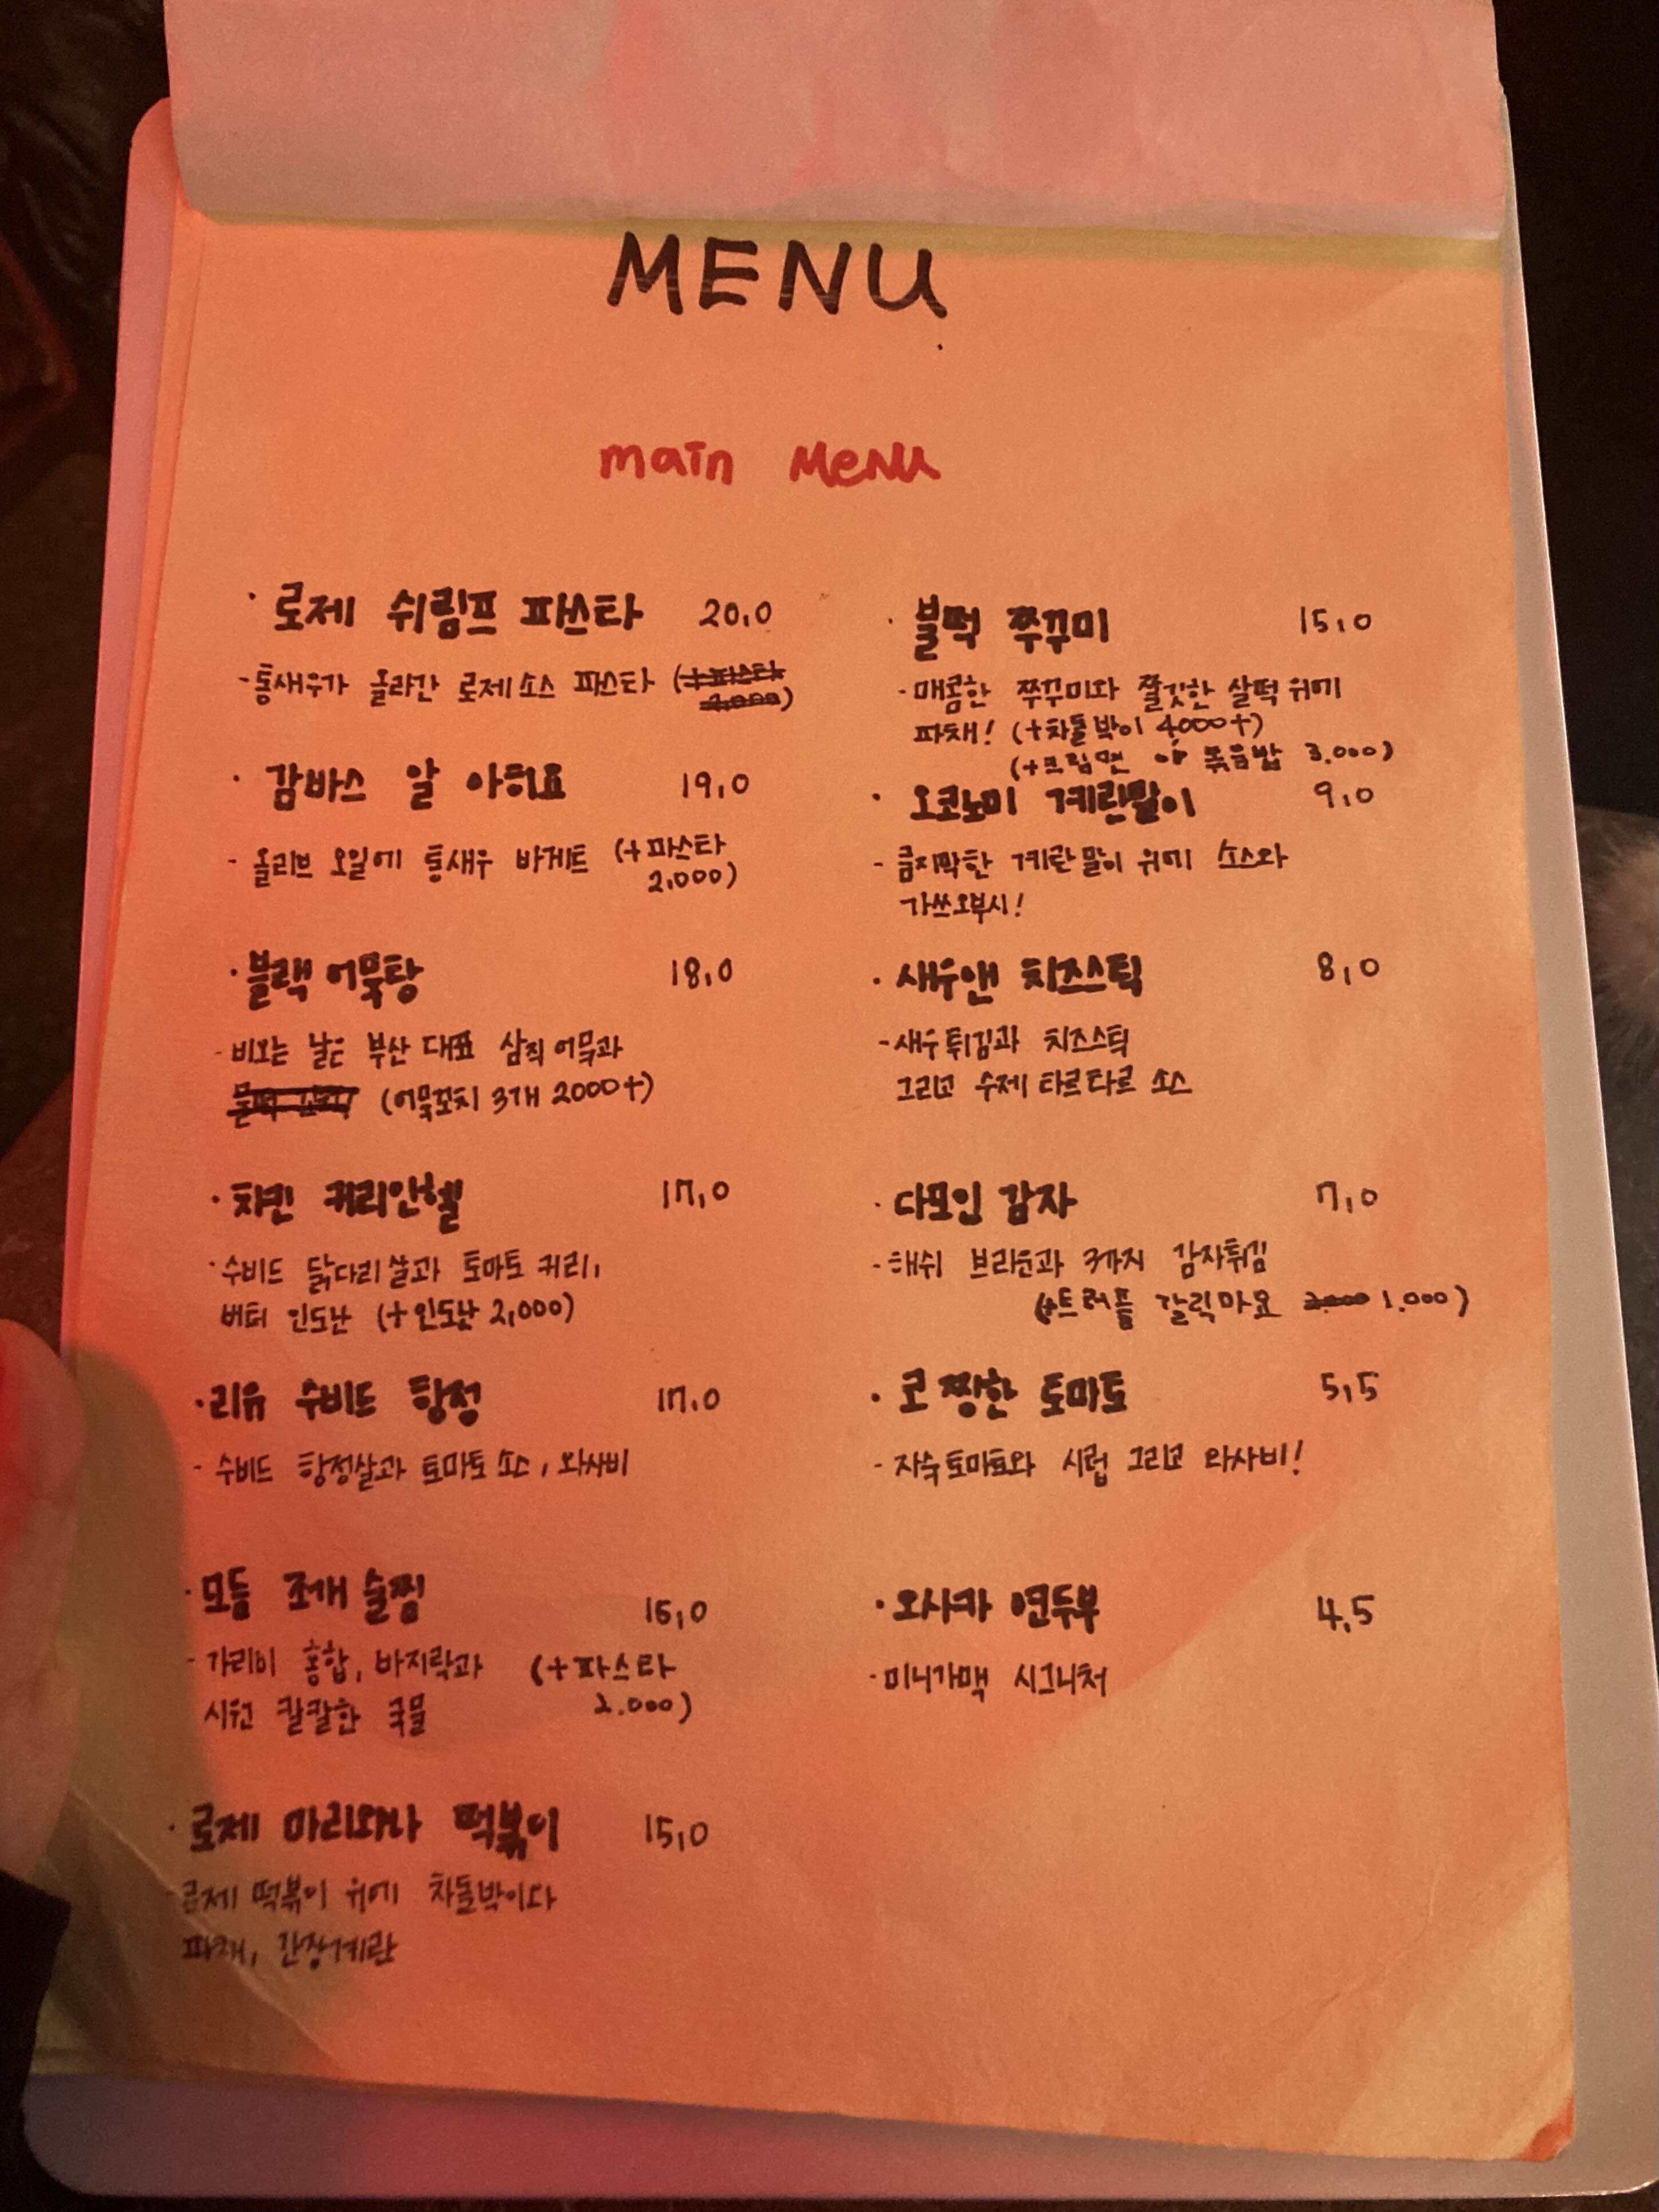 MENU
main MENU
· 로제 쉬림프 파스타 20,0
- 통새우가 올라간 로제소스 파스타 (+파스타
2,000)
· 감바스 알 아히요 19,0
- 올리브 오일에 통새우 바게트 (+파스타
2,000)
· 블랙 어묵탕 18,0
- 비오는 날은 부산 대표 삼직어묵과
(어묵꼬치 3개 2000+)
· 치킨 커리안헬 17,0
· 수비드 닭다리살과 토마토 커리,
버터 인도난 (+인도난 2,000)
· 리유 수비드 항정 17,0
- 수비드 항정살과 토마토 소스, 와사비
· 모듬 조개 술찜 16,0
- 가리비 홍합, 바지락과 (+파스타
시원 칼칼한 국물 2.000)
· 로제 마리와나 떡볶이 15,0
로제 떡볶이 위에 차돌박이다
파채, 간장계란
· 불떡 쭈꾸미 15,0
- 매콤한 쭈꾸미와 쫄깃한 살떡 위에
파채! (+차돌박이 4000+)
(+크림면 or 볶음밥 3,000)
· 오코노미 계란말이 9,0
- 큼지막한 계란말이 위에 소스와
가쓰오부시!
· 새우앤 치즈스틱 8,0
- 새우튀김과 치즈스틱
그리고 수제 타르타르 소스
· 다모인 감자 7,0
- 해쉬 브라운과 3가지 감자튀김
(+트러플 갈릭마요 2000 1.000)
· 코 찡한 토마토 5,5
- 자숙토마토와 시럽 그리고 와사비!
· 오사카 연두부 4,5
- 미니가맥 시그니처